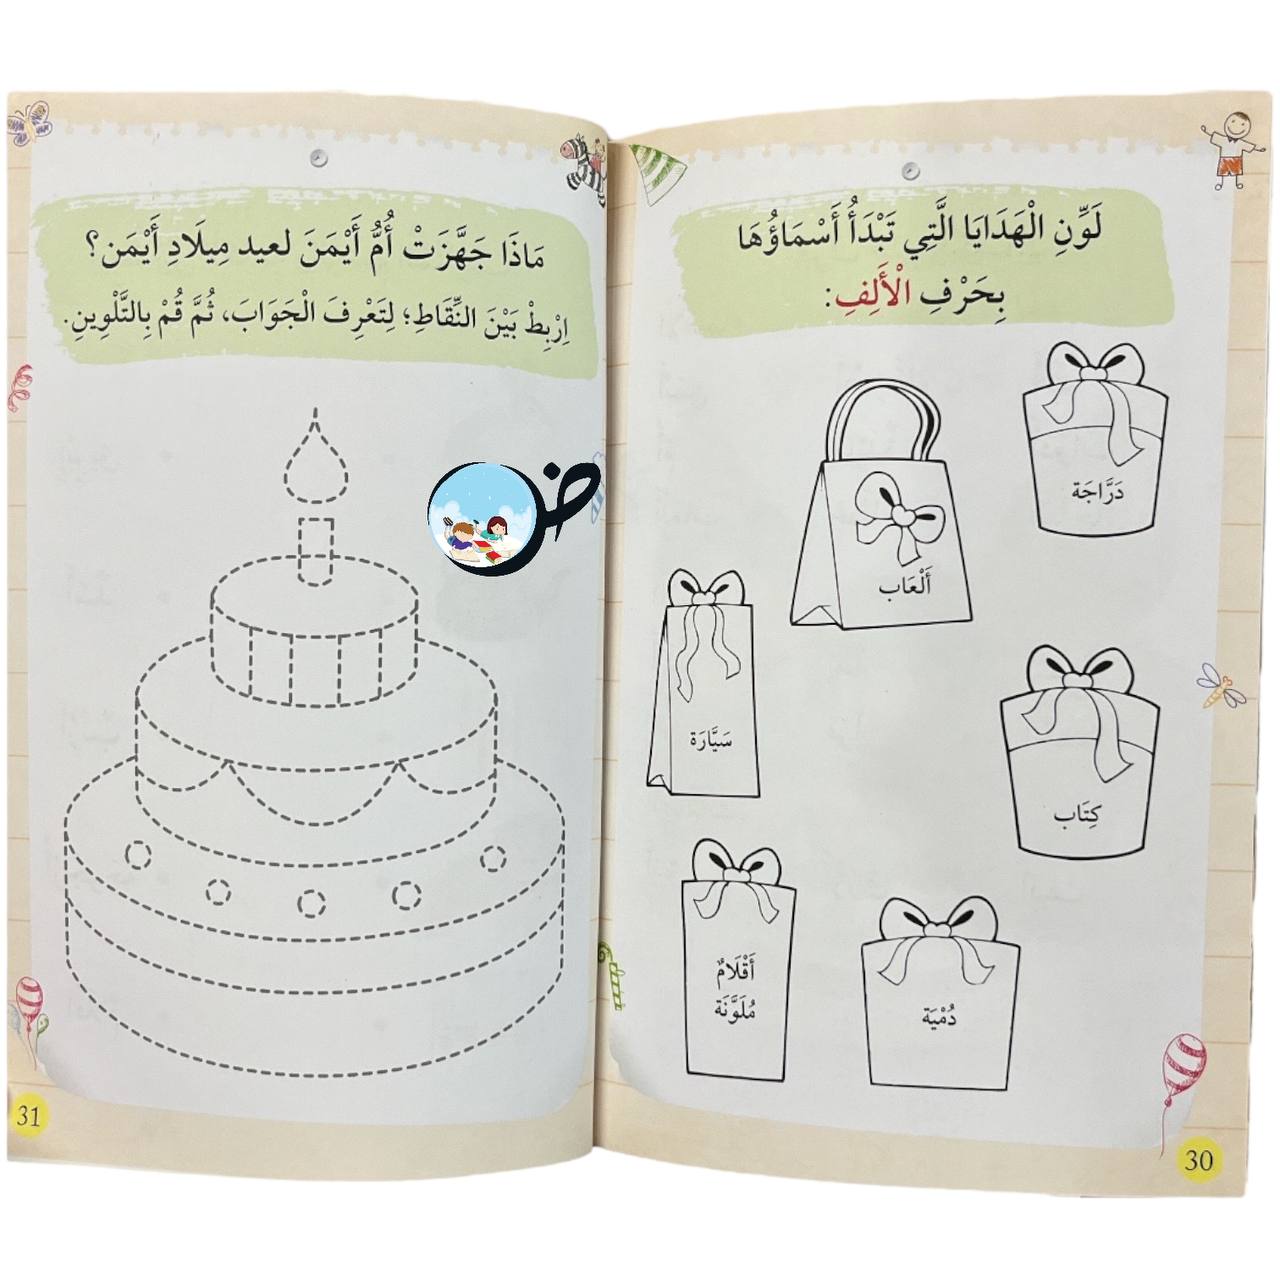 لَوِّنِ الْهَدَايَا الَّتِي تَبْدَأُ أَسْمَاؤُهَا
بِحَرْفِ الْأَلِفِ:
دَرَّاجَة
أَلْعَاب
سَيَّارَة
كِتَاب
أَقْلَامٌ
مُلَوَّنَة
دُمْيَة
30
مَاذَا جَهَّزَتْ أُمُّ أَيْمَنَ لعيد مِيلَادِ أَيْمَن؟
اِرْبِطْ بَيْنَ النِّقَاطِ؛ لِتَعْرِفَ الْجَوَابَ، ثُمَّ قُمْ بِالتَّلْوِينِ.
ض
31